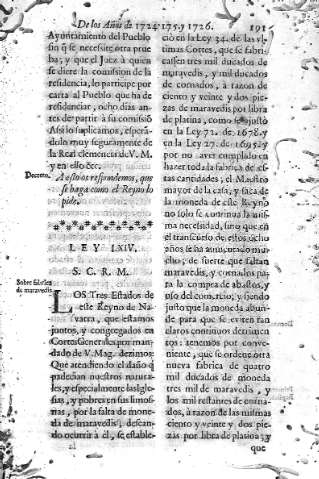 De los Años de 1724. 175. y 1726. 191
Ayuntamiento del Pueblo
sin q̃ se necesite otra prue
ba; y que el Juez à quien
se diere la comission de la
residencia, lo participe por
carta al Pueblo que ha de
residenciar, ocho dias an-
tes de partir à su comissiõ
Assi lo suplicamos, esperã-
dolo muy seguramente de
la Real clemencia de V. M.
y en ello &c.
Decreto.
A esto os respondemos, que
se haga como el Reyno lo
pide.
LEY LXIV.
S. C. R. M.
Sobre fabrica
de maravedis.
LOS Tres Estados de
este Reyno de Na-
varra, que estamos
juntos, y congregados en
Cortes Generales por man-
dado de V. Mag. dezimos:
Que atendiendo el daño q̃
padecian nuestros natura-
les, y especialmente las Igle-
sias, y pobres en sus limos-
nas, por la falta de mone-
da de maravedis, desean-
do ocurrir à èl, se estable-
ciò en la Ley 34. de las vl-
timas Cortes, que se fabri-
cassen tres mil ducados de
maravedis, y mil ducados
de cornados, à razon de
ciento y veinte y dos pie-
zas de maravedis por libra
de platina, como se ajustò
en la Ley 72. de 1678. y
en la Ley 27. de 1695. y
por no aver cumplido en
hacer toda la fabrica de es-
tas cantidades, el Maestro
mayor de la casa, y saca de
la moneda de este Reyno
no solo se continua la mis-
ma necesidad, sino que en
el transcurso de estos ocho
años se ha aumentado mu-
cho; de suerte que faltan
maravedis, y cornados pa-
ra la compra de abastos, y
uso del comercio, y siendo
justo que la moneda abun-
de para que se eviten tan
claros continuos detrimen
tos: tenemos por conve-
niente, que se ordene otra
nueva fabrica de quatro
mil ducados de moneda
tres mil de maravedis, y
los mil restantes de corna-
dos, à razon de las mismas
ciento y veinte y dos pie-
zas por libra de platina; y
que